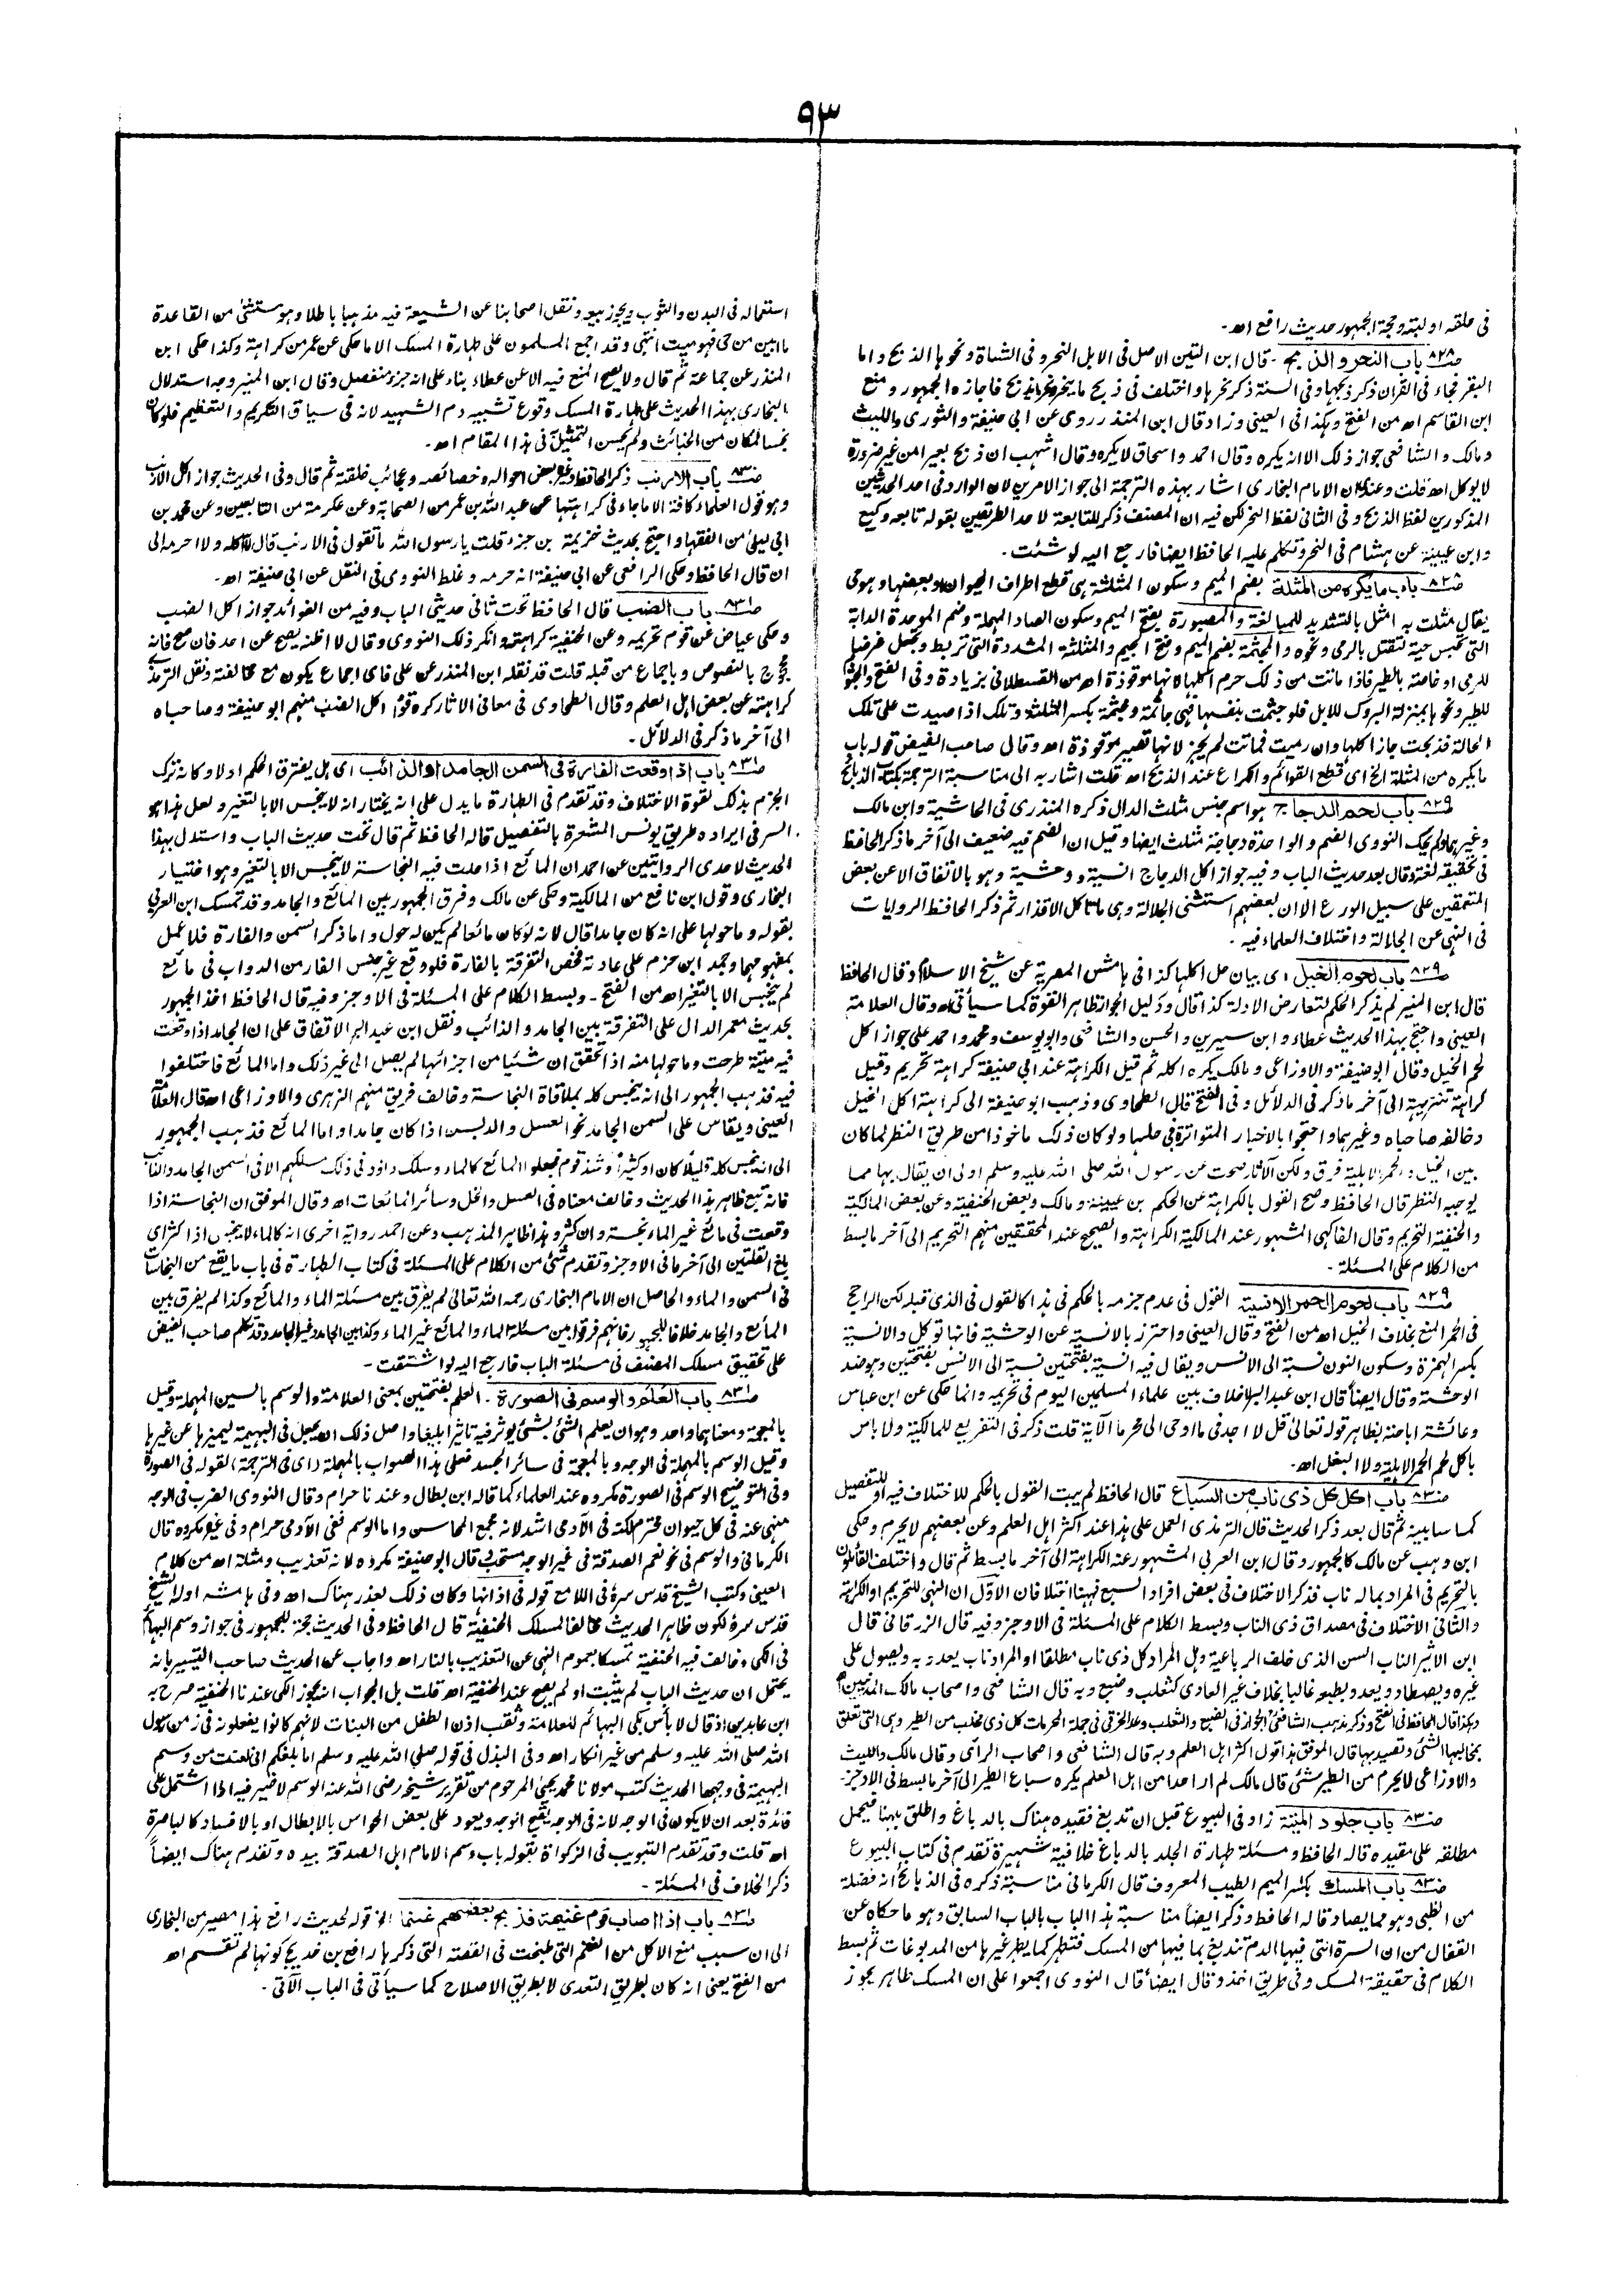 ٩٣
فى حلقه او لبته وحجة الجمهور حديث رافع اهـ۔
ص٨٢٨ باب النحر والذبح۔ قال ابن التين الاصل فى الابل النحر وفى الشاة ونحوها الذبح واما
البقر فجاء فى القرآن ذكر ذبحها وفى السنة ذكر نحرها واختلف فى ذبح ما ينحر ونحر ما يذبح فاجازه الجمهور ومنع
ابن القاسم اهـ من الفتح وهكذا فى العينى وزاد قال ابن المنذر روى عن ابى حنيفة والثورى والليث
ومالك والشافعى جواز ذلك الا انه يكره وقال احمد واسحاق لا يكره وقال اشهب ان ذبح بعيرا من غير ضرورة
لا يوكل اهـ قلت وعندى ان الامام البخارى اشار بهذه الترجمة الى جواز الامرين لان الوارد فى احد الحديثين
المذكورين لفظ الذبح وفى الثانى لفظ النحر لكن فيه ان المصنف ذكر المتابعة لاحد الطريقين بقوله تابعه وكيع
وابن عيينة عن هشام فى النحر وتكلم عليه الحافظ ايضا فارجع اليه لو شئت۔
ص٨٢٨ باب ما يكره من المثلة بضم الميم وسكون المثلثة هى قطع اطراف الحيوان او بعضها وهو حى
يقال مثلت به امثل بالتشديد للمبالغة والمصبورة بفتح الميم وسكون الصاد المهملة وضم الموحدة الدابة
التى تحبس حية لتقتل بالرمى ونحوه والمجثمة بضم الميم وفتح الجيم والمثلثة المشددة التى تربط وتجعل غرضا
للرمى او خاصة بالطير فاذا ماتت من ذلك حرم اكلها لانها موقوذة اهـ من القسطلانى بزيادة وفى الفتح والجثوم
للطير ونحوها بمنزلة البروك للابل فلو جثمت بنفسها فهى جاثمة ومجثمة بكسر المثلثة وتلك اذا صيدت على تلك
الحالة فذبحت جاز اكلها وان رميت فماتت لم يجز لانها تصير موقوذة اهـ وقال صاحب الفيض قوله باب
ما يكره من المثلة الخ اى قطع القوائم والكراع عند الذبح اهـ قلت اشار به الى مناسبة الترجمة بكتاب الذبائح
ص٨٢٩ باب لحم الدجاج هو اسم جنس مثلث الدال ذكره المنذرى فى الحاشية وابن مالك
وغيرهما ولم يحك النووى الضم والواحدة دجاجة مثلث ايضا وقيل ان الضم فيه ضعيف الى آخر ما ذكر الحافظ
فى تحقيقه لغة وقال بعد حديث الباب وفيه جواز اكل الدجاج انسية ووحشية وهو بالاتفاق الا عن بعض
المتعمقين على سبيل الورع الا ان بعضهم استثنى الجلالة وهى ما تاكل الاقذار ثم ذكر الحافظ الروايات
فى النهى عن الجلالة واختلاف العلماء فيه۔
ص٨٢٩ باب لحوم الخيل اى بيان حل اكلها كذا فى هامش المصرية عن شيخ الاسلام وقال الحافظ
قال ابن المنير لم يذكر الحكم لتعارض الادلة كذا قال ودليل الجواز ظاهر القوة كما سيأتى اهـ وقال العلامة
العينى واحتج بهذا الحديث عطاء وابن سيرين والحسن والشافعى وابو يوسف ومحمد واحمد على جواز اكل
لحم الخيل وقال ابو حنيفة والاوزاعى ومالك يكره اكله ثم قيل الكراهة عند ابى حنيفة كراهة تحريم وقيل
كراهة تنزيهية الى آخر ما ذكر فى الدلائل وفى الفتح قال الطحاوى وذهب ابو حنيفة الى كراهة اكل الخيل
وخالفه صاحباه وغيرهما واحتجوا بالاخبار المتواترة فى حلها ولو كان ذلك ماخوذا من طريق النظر لما كان
بين الخيل والحمر الاهلية فرق ولكن الآثار صحت عن رسول الله صلى الله عليه وسلم اولى ان يقال بها مما
يوجبه النظر قال الحافظ وصح القول بالكراهة عن الحكم بن عيينة ومالك وبعض الحنفية وعن بعض المالكية
والحنفية التحريم وقال الفاكهى المشهور عند المالكية الكراهة والصحيح عند المحققين منهم التحريم الى آخر ما بسط
من الكلام على المسئلة۔
ص٨٢٩ باب لحوم الحمر الانسية القول فى عدم جزمه بالحكم فى هذا كالقول فى الذى قبله لكن الراجح
فى الحمر المنع بخلاف الخيل اهـ من الفتح وقال العينى واحترز بالانسية عن الوحشية فانها توكل والانسية
بكسر الهمزة وسكون النون نسبة الى الانس ويقال فيه انسية بفتحتين نسبة الى الانس بفتحتين وهو ضد
الوحشة وقال ايضاً قال ابن عبد البر لا خلاف بين علماء المسلمين اليوم فى تحريمه وانما حكى عن ابن عباس
وعائشة اباحته بظاهر قوله تعالى قل لا اجد فى ما اوحى الى محرما الآية قلت ذكر فى التفريع للمالكية ولا باس
باكل لحم الحمر الاهلية ولا البغل اهـ۔
ص٨٣٠ باب اكل كل ذى ناب من السباع قال الحافظ لم يبت القول بالحكم للاختلاف فيه او للتفصيل
كما سابينه ثم قال بعد ذكر الحديث قال الترمذى العمل على هذا عند اكثر اهل العلم وعن بعضهم لا يحرم وحكى
ابن وهب عن مالك كالجمهور وقال ابن العربى المشهور عنه الكراهة الى آخر ما بسط ثم قال واختلف القائلون
بالتحريم فى المراد بما له ناب فذكر الاختلاف فى بعض افراد السبع فههنا اختلافان الاول ان النهى للتحريم او الكراهة
والثانى الاختلاف فى مصداق ذى الناب وبسط الكلام على المسئلة فى الاوجز وفيه قال الزرقانى قال
ابن الاثير الناب السن الذى خلف الرباعية وهل المراد كل ذى ناب مطلقا او المراد ناب يعدو به ويصول على
غيره ويصطاد ويعدو بطبعه غالبا بخلاف غير العادى كثعلب وضبع وبه قال الشافعى واصحاب مالك المدنيين
وهكذا قال الحافظ فى الفتح وذكر مذهب الشافعى الجواز فى الضبع والثعلب وعد الخرقى فى جملة المحرمات كل ذى مخلب من الطير وهى التى تعلق
بمخالبها الشئ وتصيد بها قال الموفق هذا قول اكثر اهل العلم وبه قال الشافعى واصحاب الرأى وقال مالك والليث
والاوزاعى لا يحرم من الطير شئ قال مالك لم ار احدا من اهل العلم يكره سباع الطير الى آخر ما بسط فى الاوجز۔
ص٨٣٠ باب جلود الميتة زاد فى البيوع قبل ان تدبغ فقيده هناك بالدباغ واطلق ههنا فيحمل
مطلقه على مقيده قاله الحافظ ومسئلة طهارة الجلد بالدباغ خلافية شهيرة تقدم فى كتاب البيوع
ص٨٣٠ باب المسك بكسر الميم الطيب المعروف قال الكرمانى مناسبة ذكره فى الذبائح انه فضلة
من الظبى وهو مما يصاد قاله الحافظ وذكر ايضاً مناسبة هذا الباب بالباب السابق وهو ما حكاه عن
القفال من ان السرة التى فيها الدم تندبغ بما فيها من المسك فتطهر كما يطهر غيرها من المدبوغات ثم بسط
الكلام فى حقيقة المسك وفى طريق اخذه وقال ايضاً قال النووى اجمعوا على ان المسك طاهر يجوز
استعماله فى البدن والثوب ويجوز بيعه ونقل اصحابنا عن الشيعة فيه مذهبا باطلا وهو مستثنى من القاعدة
ما ابين من حى فهو ميت انتهى وقد اجمع المسلمون على طهارة المسك الا ما حكى عن عمر من كراهة وكذا حكى ابن
المنذر عن جماعة ثم قال ولا يصح المنع فيه الا عن عطاء بناء على انه جزء منفصل وقال ابن المنير وجه استدلال
البخارى بهذا الحديث على طهارة المسك وقوع تشبيه دم الشهيد لانه فى سياق التكريم والتعظيم فلو كان
نجسا لكان من الخبائث ولم يحسن التمثيل فى هذا المقام اهـ۔
ص٨٣٠ باب الارنب ذكر الحافظ وغيره بعض احواله وخصائصه وعجائب خلقته ثم قال وفى الحديث جواز اكل الارنب
وهو قول العلماء كافة الا ما جاء فى كراهتها عن عبد الله بن عمر من الصحابة وعن عكرمة من التابعين وعن محمد بن
ابى ليلى من الفقهاء واحتج بحديث خزيمة بن جزء قلت يا رسول الله ما تقول فى الارنب قال لا آكله ولا احرمه الى
ان قال الحافظ وحكى الرافعى عن ابى حنيفة انه حرمه وغلط النووى فى النقل عن ابى حنيفة اهـ۔
ص٨٣١ باب الضب قال الحافظ تحت ثانى حديثى الباب وفيه من الفوائد جواز اكل الضب
وحكى عياض عن قوم تحريمه وعن الحنفية كراهته وانكر ذلك النووى وقال لا اظنه يصح عن احد فان صح فانه
محجوج بالنصوص وباجماع من قبله قلت قد نقله ابن المنذر عن على فاى اجماع يكون مع مخالفته ونقل الترمذى
كراهته عن بعض اهل العلم وقال الطحاوى فى معانى الاثار كره قوم اكل الضب منهم ابو حنيفة وصاحباه
الى آخر ما ذكر فى الدلائل۔
ص٨٣١ باب اذا وقعت الفارة فى السمن الجامد او الذائب اى هل يفترق الحكم او لا وكانه ترك
الجزم بذلك لقوة الاختلاف وقد تقدم فى الطهارة ما يدل على انه يختار انه لا ينجس الا بالتغير ولعل هذا هو
السر فى ايراده طريق يونس المشعرة بالتفصيل قاله الحافظ ثم قال تحت حديث الباب واستدل بهذا
الحديث لاحدى الروايتين عن احمد ان المائع اذا حلت فيه النجاسة لا ينجس الا بالتغير وهو اختيار
البخارى وقول ابن نافع من المالكية وحكى عن مالك وفرق الجمهور بين المائع والجامد وقد تمسك ابن العربى
بقوله وما حولها على انه كان جامدا قال لانه لو كان مائعا لم يكن له حول واما ذكر السمن والفارة فلا عمل
بمفهومهما وجمد ابن حزم على عادته فخص التفرقة بالفارة فلو وقع غير جنس الفار من الدواب فى مائع
لم ينجس الا بالتغير اهـ من الفتح۔ وبسط الكلام على المسئلة فى الاوجز وفيه قال الحافظ اخذ الجمهور
بحديث معمر الدال على التفرقة بين الجامد والذائب ونقل ابن عبد البر الاتفاق على ان الجامد اذا وقعت
فيه ميتة طرحت وما حولها منه اذا تحقق ان شيئا من اجزائها لم يصل الى غير ذلك واما المائع فاختلفوا
فيه فذهب الجمهور الى انه ينجس كله بملاقاة النجاسة وخالف فريق منهم الزهرى والاوزاعى اهـ قال العلامة
العينى ويقاس على السمن الجامد نحو العسل والدبس اذا كان جامدا واما المائع فذهب الجمهور
الى انه ينجس كله قليلا كان او كثيرا وشذ قوم فجعلوا المائع كالماء وسلك داؤد فى ذلك مسلكهم الا فى السمن الجامد والذائب
فانه تبع ظاهر هذا الحديث وخالف معناه فى العسل والخل وسائر المائعات اهـ وقال الموفق ان النجاسة اذا
وقعت فى مائع غير الماء نجسته وان كثر وهذا ظاهر المذهب وعن احمد رواية اخرى انه كالماء لا ينجس اذا كثر اى
بلغ القلتين الى آخر ما فى الاوجز وتقدم شئ من الكلام على المسئلة فى كتاب الطهارة فى باب ما يقع من النجاسات
فى السمن والماء والحاصل ان الامام البخارى رحمه الله تعالى لم يفرق بين مسئلة الماء والمائع وكذا لم يفرق بين
المائع والجامد خلافا للجمهور فانهم فرقوا بين مسئلة الماء والمائع غير الماء وكذا بين الجامد وغير الجامد وقد تكلم صاحب الفيض
على تحقيق مسلك المصنف فى مسئلة الباب فارجع اليه لو اشتقت۔
ص٨٣١ باب العلم والوسم فى الصورة۔ العلم بفتحتين بمعنى العلامة والوسم بالسين المهملة وقيل
بالمعجمة ومعناهما واحد وهو ان يعلم الشئ بشئ يوثر فيه تاثيرا بليغا واصل ذلك ان يجعل فى البهيمة ليميزها عن غيرها
وقيل الوسم بالمهملة فى الوجه وبالمعجمة فى سائر الجسد فعلى هذا الصواب بالمهملة (اى فى الترجمة) لقوله فى الصورة
وفى التوضيح الوسم فى الصورة مكروه عند العلماء كما قاله ابن بطال وعندنا حرام وقال النووى الضرب فى الوجه
منهى عنه فى كل حيوان محترم لكنه فى الآدمى اشد لانه مجمع المحاسن واما الوسم ففى الآدمى حرام وفى غيره مكروه قال
الكرمانى والوسم فى نحو نعم الصدقة فى غير الوجه مستحب قال ابو حنيفة مكروه لانه تعذيب ومثلة اهـ من كلام
العينى وكتب الشيخ قدس سره فى اللامع قوله فى اذانها وكان ذلك لعذر هناك اهـ وفى هامشه اوله الشيخ
قدس سره لكون ظاهر الحديث مخالفا لمسلك الحنفية قال الحافظ وفى الحديث حجة للجمهور فى جواز وسم البهائم
فى الكى وخالف فيه الحنفية تمسكا بعموم النهى عن التعذيب بالنار اهـ واجاب عن الحديث صاحب التيسير بانه
يحتمل ان حديث الباب لم يثبت او لم يصح عند الحنفية اهـ قلت بل الجواب انه يجوز الكى عندنا الحنفية صرح به
ابن عابدين اذ قال لا بأس بكى البهائم للعلامة وثقب اذن الطفل من البنات لانهم كانوا يفعلونه فى زمن رسول
الله صلى الله عليه وسلم من غير انكار اهـ وفى البذل فى قوله صلى الله عليه وسلم اما بلغكم انى لعنت من وسم
البهيمة فى وجهها الحديث كتب مولانا محمد يحيى المرحوم من تقرير شيخه رضى الله عنه الوسم لا ضير فيه اذا اشتمل على
فائدة بعد ان لا يكون فى الوجه لانه فى الوجه يقبح الوجه ويعود على بعض الحواس بالابطال او بالافساد كالباصرة
اهـ قلت وقد تقدم التبويب فى الزكواة بقوله باب وسم الامام ابل الصدقة بيده وتقدم هناك ايضاً
ذكر الخلاف فى المسئلة۔
ص٨٣١ باب اذا اصاب قوم غنيمة فذبح بعضهم غنما الخ قوله لحديث رافع هذا مصير من البخارى
الى ان سبب منع الاكل من الغنم التى طبخت فى القصة التى ذكرها رافع بن خديج كونها لم تقسم اهـ
من الفتح يعنى انه كان بطريق التعدى لا بطريق الاصلاح كما سيأتى فى الباب الآتى۔